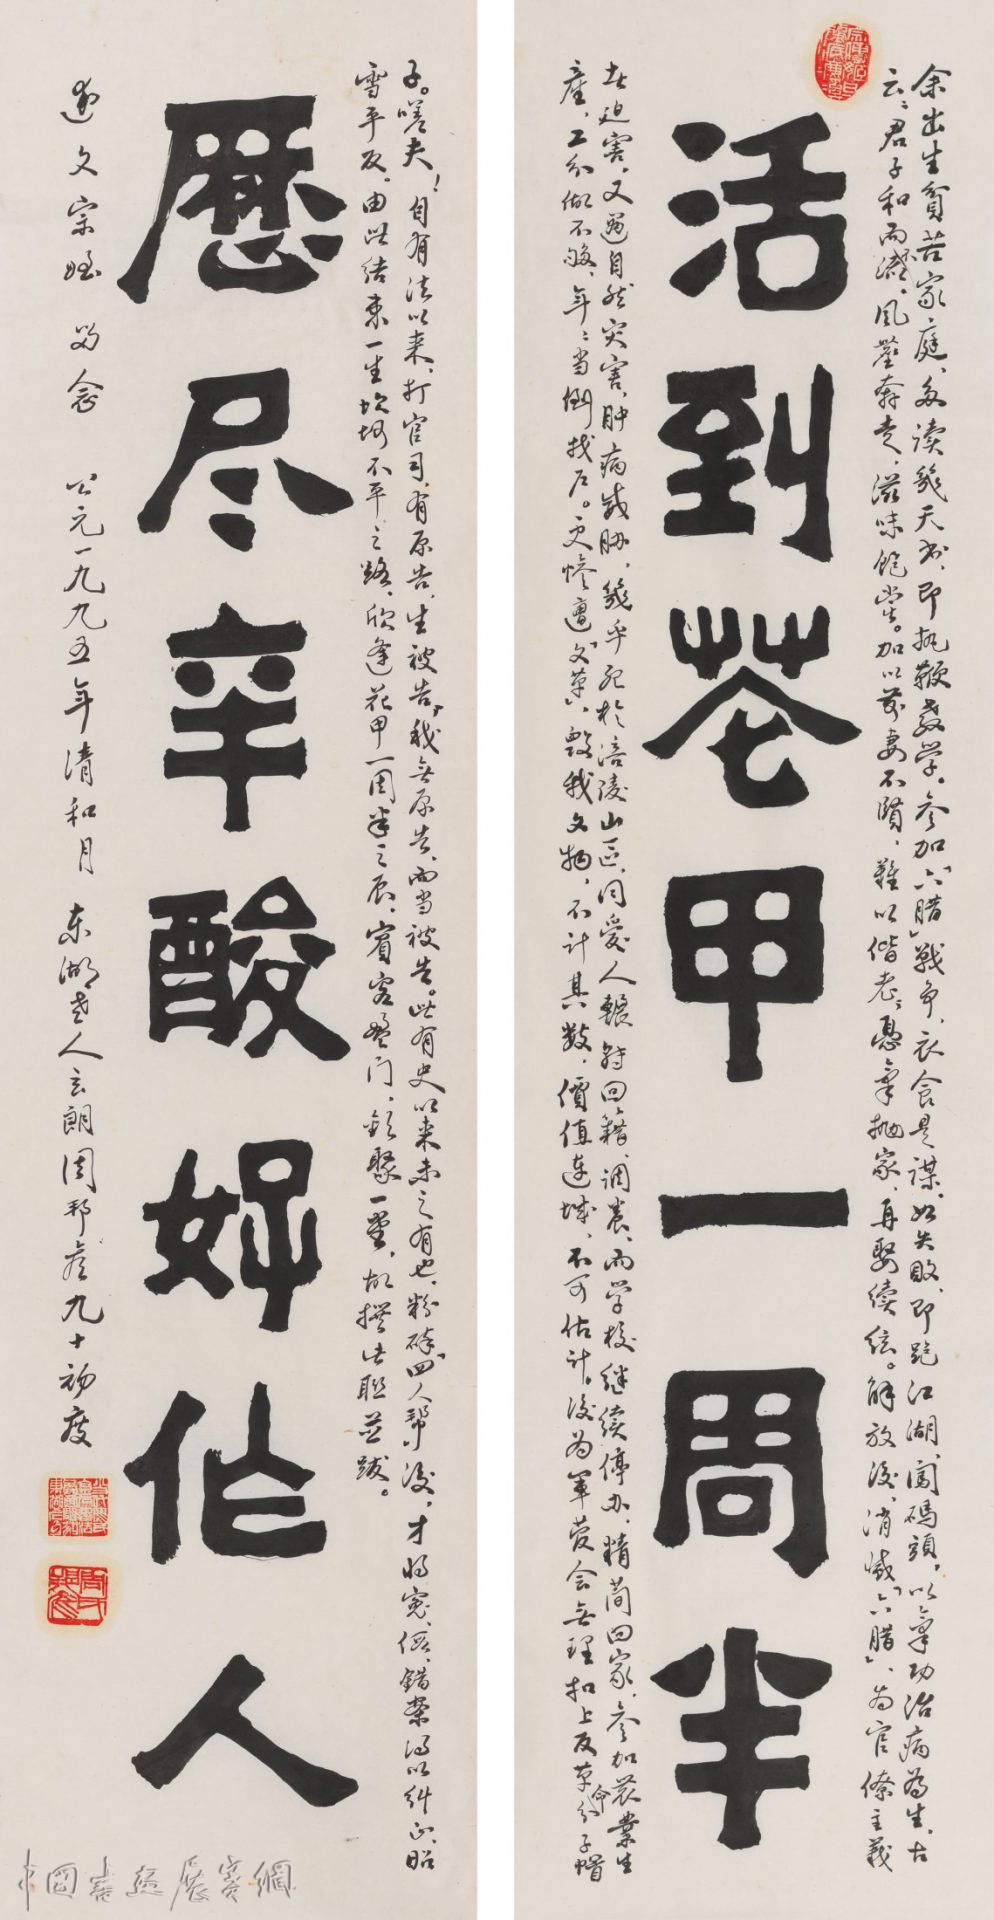 活到花甲一周半
余出生貧苦家庭、多读几天书、即执鞭教学。参加「六腊」战争、衣食是谋、如失败、即跑江湖、闯碼頭、以氣功治病為生、古
云：君子和而 风尘奔走、滋味饱尝。加以前妻不賢、难以偕老、忍氣抛家、再娶续弦。解放後、消滅「六腊」、为官僚主義
者迫害、又遇自然灾害、肿病威胁、幾乎死於涪陵山区、同爱人辗转回籍、调养、而学校继续停办、精简回家、参加农業生
産、工分做不够、年年当倒找户。更惨遭「文革」、毁我文物、不计其数、價值连城、不可估计。後为軍管会無理扣上反革命分子帽
子。嗟夫！自有法以来、打官司、有原告、生被告、我無原告、而当被告。此有史以来未之有也、粉碎「四人帮」後、才将冤、假、錯案得以纠正、昭
雪平反。由此结束一生坎坷不平之路、欣逢花甲一周半之辰、賓客盈门、欢聚一堂、故撰此联並跋。
歷尽辛酸好作人
文宗姪 留念 公元一九九五年清和月 东湖老人玄朗周邦彦九十初度
中國書法展賽網